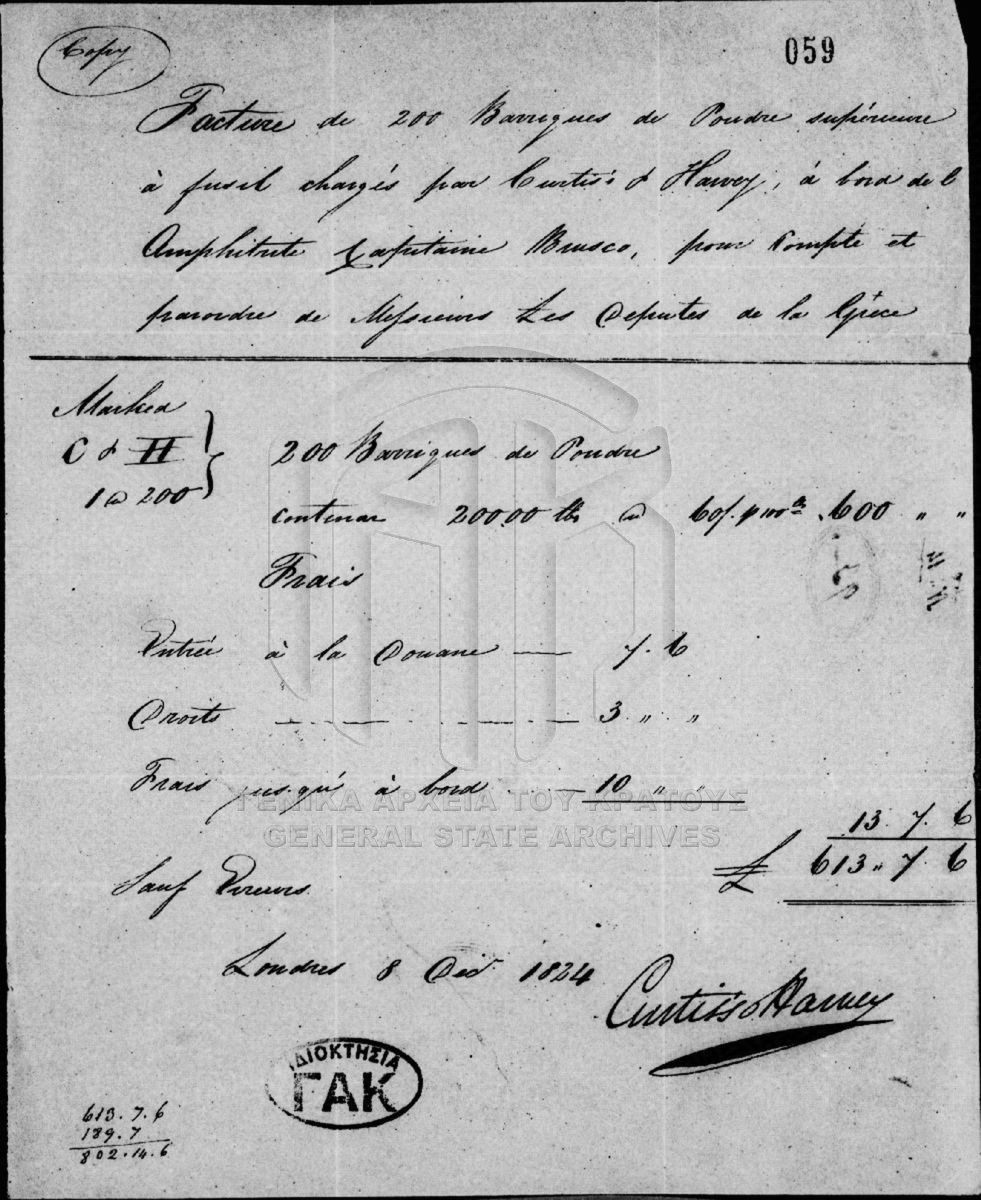 Copy
059
Facture de 200 Barriques de Poudre supérieure
à fusil chargés par Curtis's & Harvey, à bord de l
Amphitrite Capitaine Brusco, pour Compte et
parordre de Messieurs Les Deputes de la Grèce
Marked
C & H
1 a 200
200 Barriques de Poudre
contenar 20000 lbs @ 60/. p 100 lb 600 " "
Frais
Entrée à la Douane — 7. 6
Droits — 3 " "
Frais jusqu'à bord — 10 " "
13. 7. 6
£ 613 " 7. 6
Sauf Erreurs
Londres 8 Dec 1824
Curtis's & Harvey
ΓΕΝΙΚΑ ΑΡΧΕΙΑ ΤΟΥ ΚΡΑΤΟΥΣ
GENERAL STATE ARCHIVES
ΙΔΙΟΚΤΗΣΙΑ
ΓΑΚ
613. 7. 6
189. 7
802. 14. 6